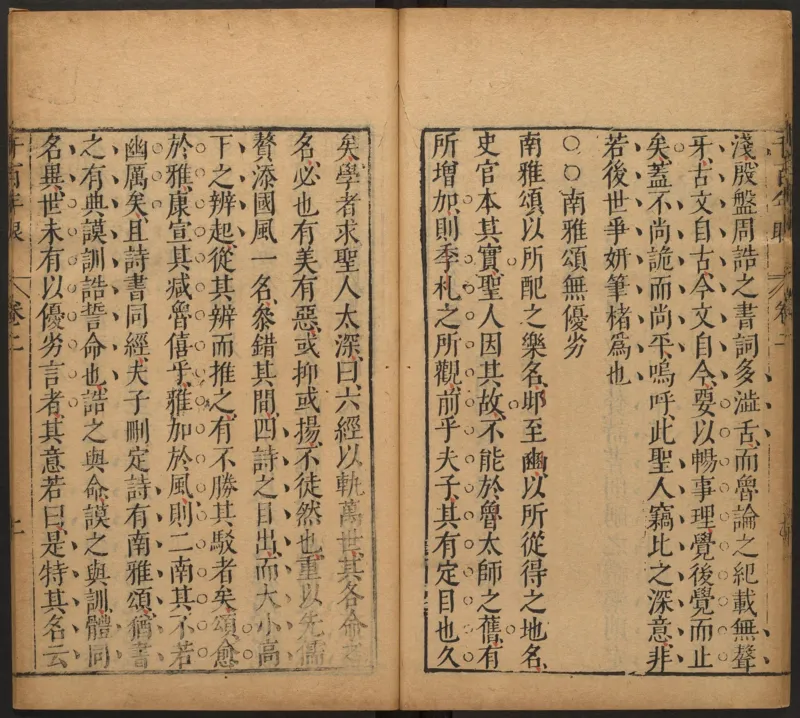 淺殷盤周誥之書詞多溢舌而魯論之紀載無聱
牙古文自古今文自今要以暢事理覺後覺而止
矣蓋不尚詭而尚平嗚呼此聖人竊比之深意非
若後世爭妍筆楮爲也
○○南雅頌無優劣
南雅頌以所配之樂名邶至豳以所從得之地名
史官本其實聖人因其故不能於魯太師之舊有
所增加則季札之所觀前乎夫子其有定目也久
矣學者求聖人太深曰六經以軌萬世其各命之
名必也有美有惡或抑或揚不徒然也重以先儒
贅添國風一名叅錯其間四詩之目出而大小高
下之辨起從其辨而推之有不勝其駁者矣頌愈
於雅康宣其减魯僖乎雅加於風則二南其不若
幽厲矣且詩書同經夫子刪定詩有南雅頌猶書
之有典謨訓誥誓命也誥之與命謨之與訓體同
名異世未有以優劣言者其意若曰是特其名云
千百年眼 卷二